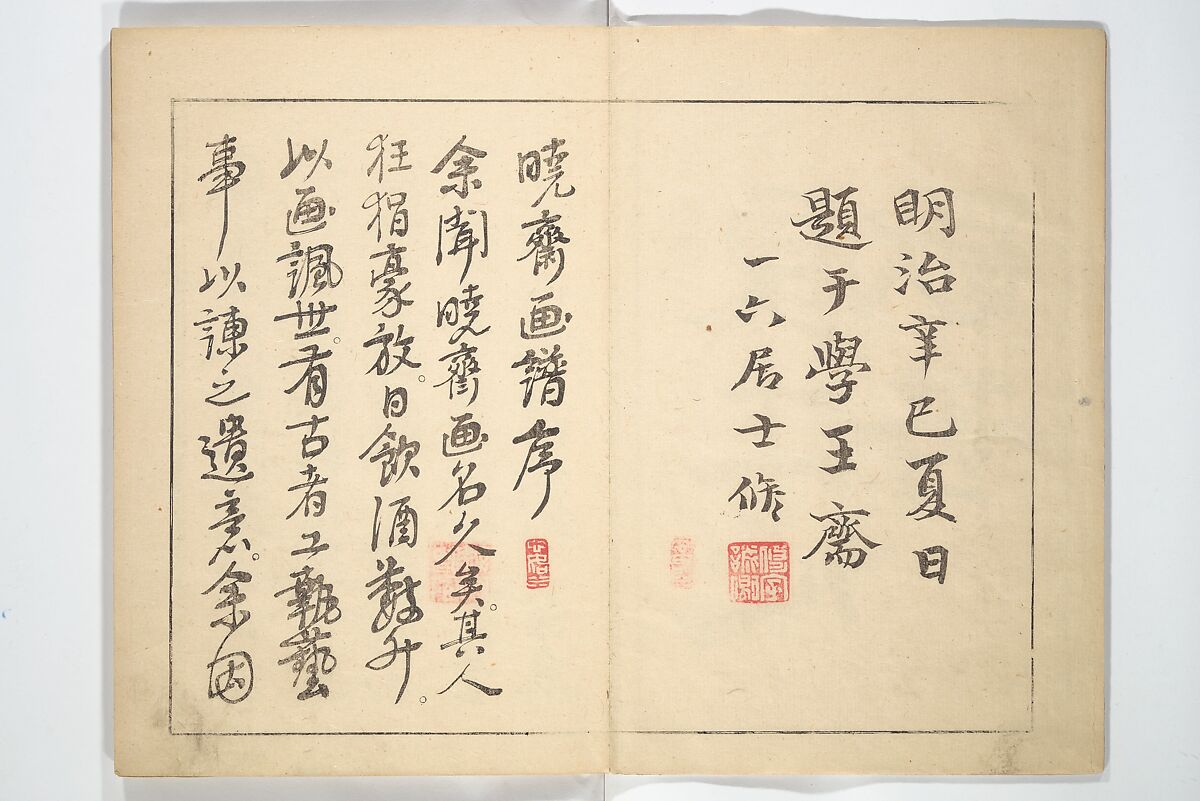 明治辛巳夏日
題于學王齋
一六居士修
暁齋画譜序
余聞暁齋画名久矣。其人
狂狷豪放。日飲酒數升。
以画諷世。有古者工執藝
事以諌之遺意。余因